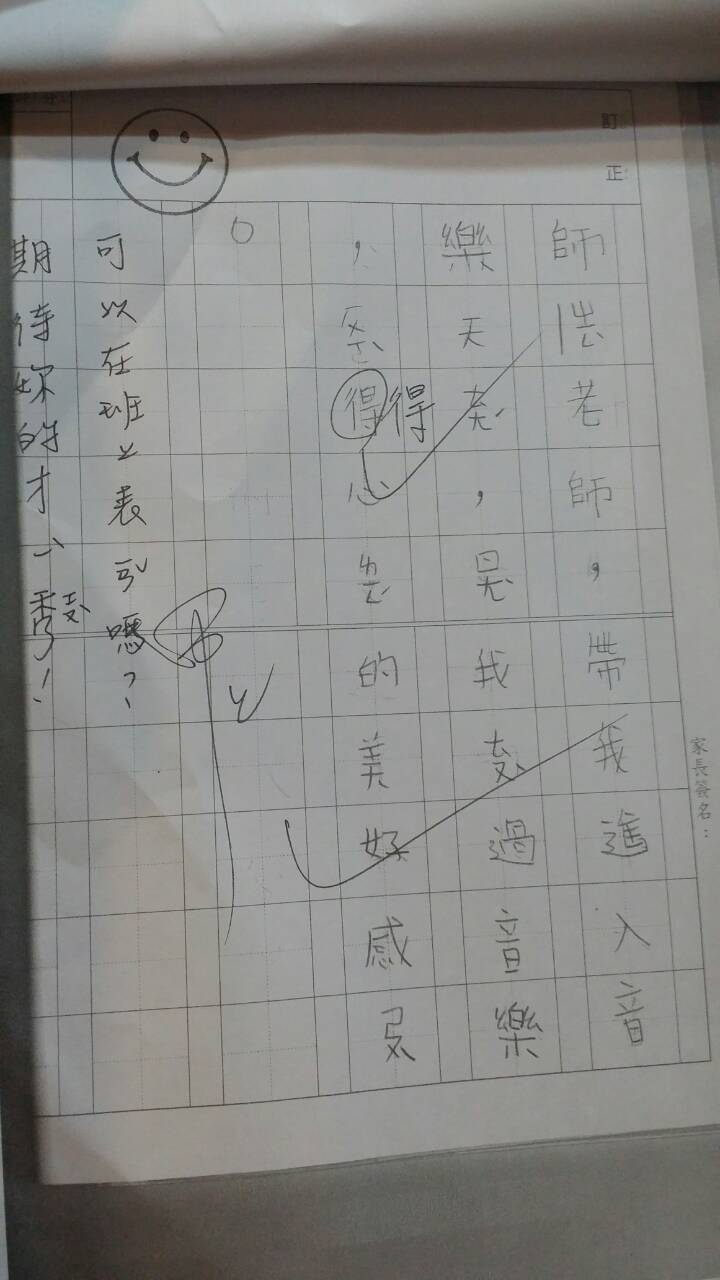 訂正
家長簽名：
師老師，帶我進入音
樂天，是我過音樂
，得得心的美好感受
。
可以在班上表演嗎？
期待妳的才藝秀！